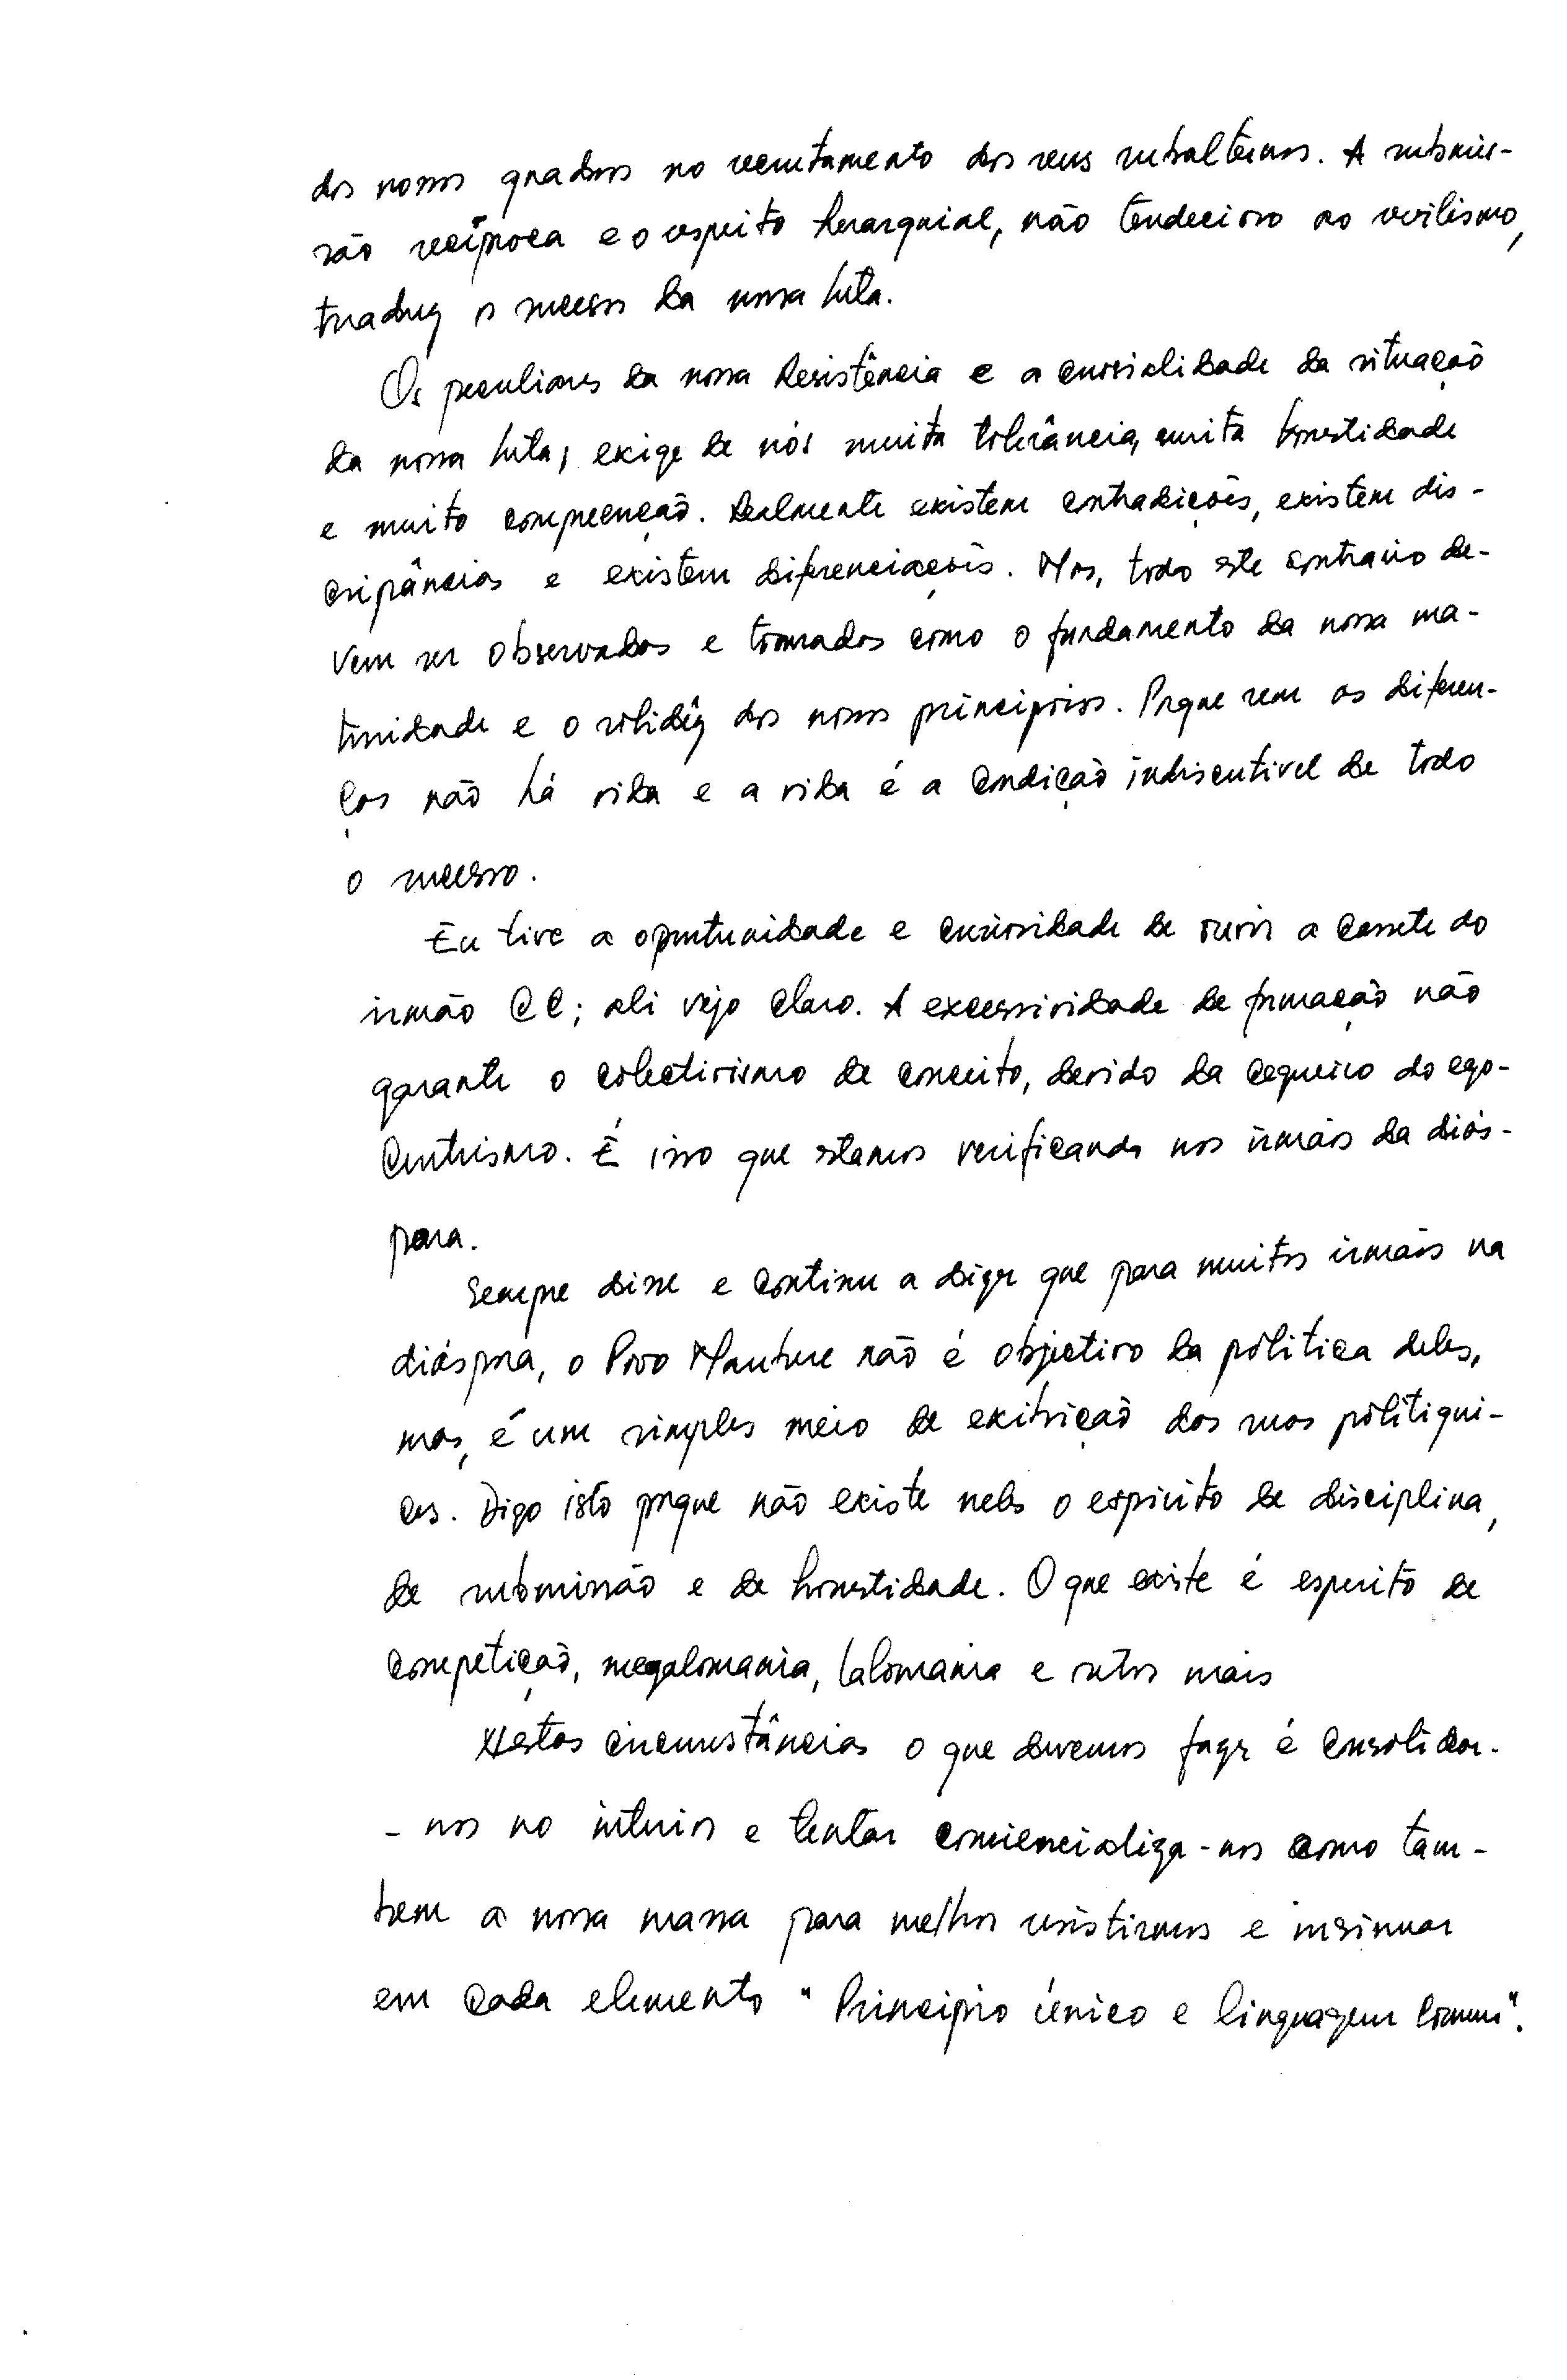 dos nossos quadros no recrutamento dos seus subalternos. A submis-
são recíproca e o respeito herarquial, não tendecioso ao servilismo,
traduz o sucesso da nossa luta.
Os peculiares da nossa Resistência e a crucialidade da situação
da nossa luta, exige de nós muita tolerância, muita honestidade
e muito compreenção. Realmente existem contradições, existem dis-
cripâncias e existem diferenciações. Mas, todo este contrario de-
vem ser observados e tomados como o fundamento da nossa ma-
turidade e o solidêz dos nossos princípios. Porque sem as diferen-
ças não há vida e a vida é a condição indiscutivel de todo
o sucesso.
Eu tive a oportunidade e curiosidade de ouvir a cassete do
irmão CC; ali vejo claro. A excessividade de formação não
garante o colectivismo de conceito, devido da cegueira do ego-
centrismo. É isso que estamos verificando nos irmãos da diás-
pora.
Sempre disse e continu a dizer que para muitos irmãos na
diáspora, o Povo Maubere não é objectivo da política deles,
mas, é um simples meio de exibição das suas politiqui-
ces. Digo isto porque não existe neles o espirito de disciplina,
de submissão e de honestidade. O que existe é esperito de
competição, megalomania, lalomania e outros mais
Nestas circunstâncias o que devemos fazer é consolidar-
-nos no interior e tentar consciencializa-nos como tam-
bem a nossa massa para melhor resistirmos e insinuar
em cada elemento "Principio único e linguagem comum".